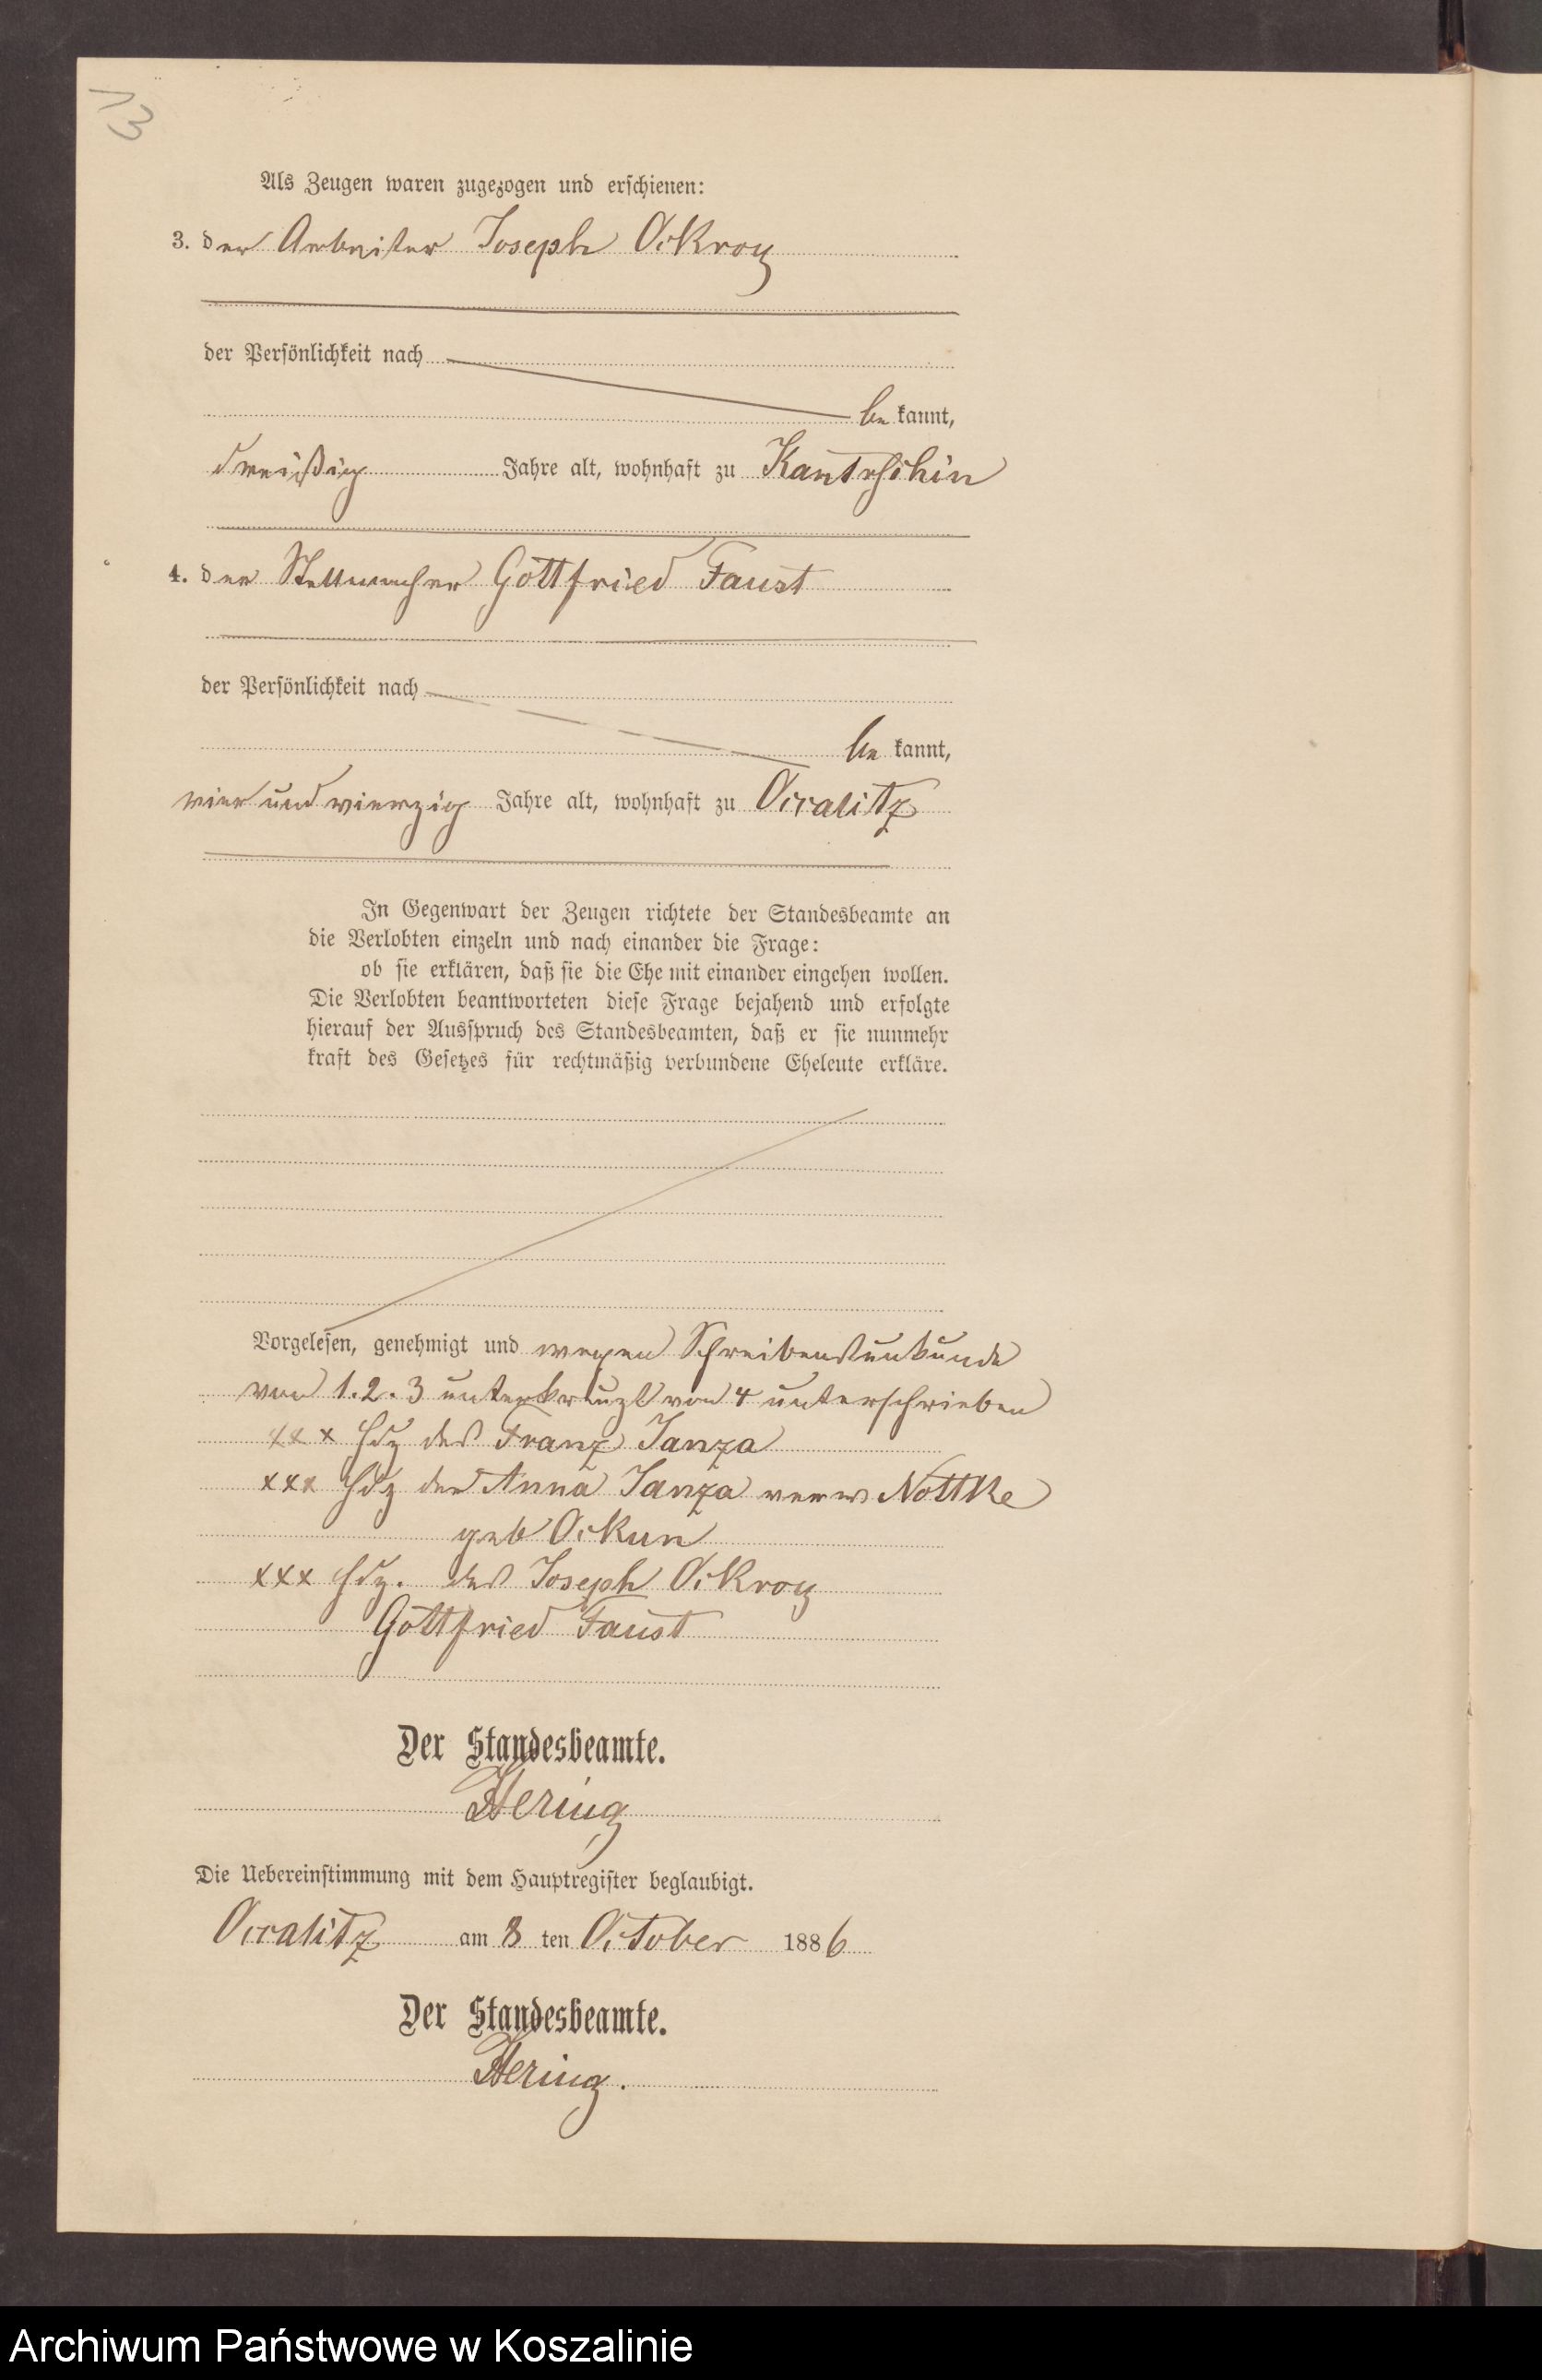 13
Als Zeugen waren zugezogen und erschienen:
3. der Arbeiter Joseph Ockroy
der Persönlichkeit nach
be kannt,
dreißig Jahre alt, wohnhaft zu Kantrschin
4. der Stellmacher Gottfried Faust
der Persönlichkeit nach
be kannt,
vier und vierzig Jahre alt, wohnhaft zu Occalitz
In Gegenwart der Zeugen richtete der Standesbeamte an
die Verlobten einzeln und nach einander die Frage:
ob sie erklären, daß sie die Ehe mit einander eingehen wollen.
Die Verlobten beantworteten diese Frage bejahend und erfolgte
hierauf der Ausspruch des Standesbeamten, daß er sie nunmehr
kraft des Gesetzes für rechtmäßig verbundene Eheleute erkläre.
Vorgelesen, genehmigt und wegen Schreibensunkunde
von 1. 2. 3 unterkreuzt von 4 unterschrieben
xxx Hdz des Franz Janza
xxx Hdz der Anna Janza verw Nottke
geb Ockun
xxx Hdz. des Joseph Ockroy
Gottfried Faust
Der Standesbeamte.
Hering
Die Uebereinstimmung mit dem Hauptregister beglaubigt.
Occalitz am 8 ten October 1886
Der Standesbeamte.
Hering.
Archiwum Państwowe w Koszalinie